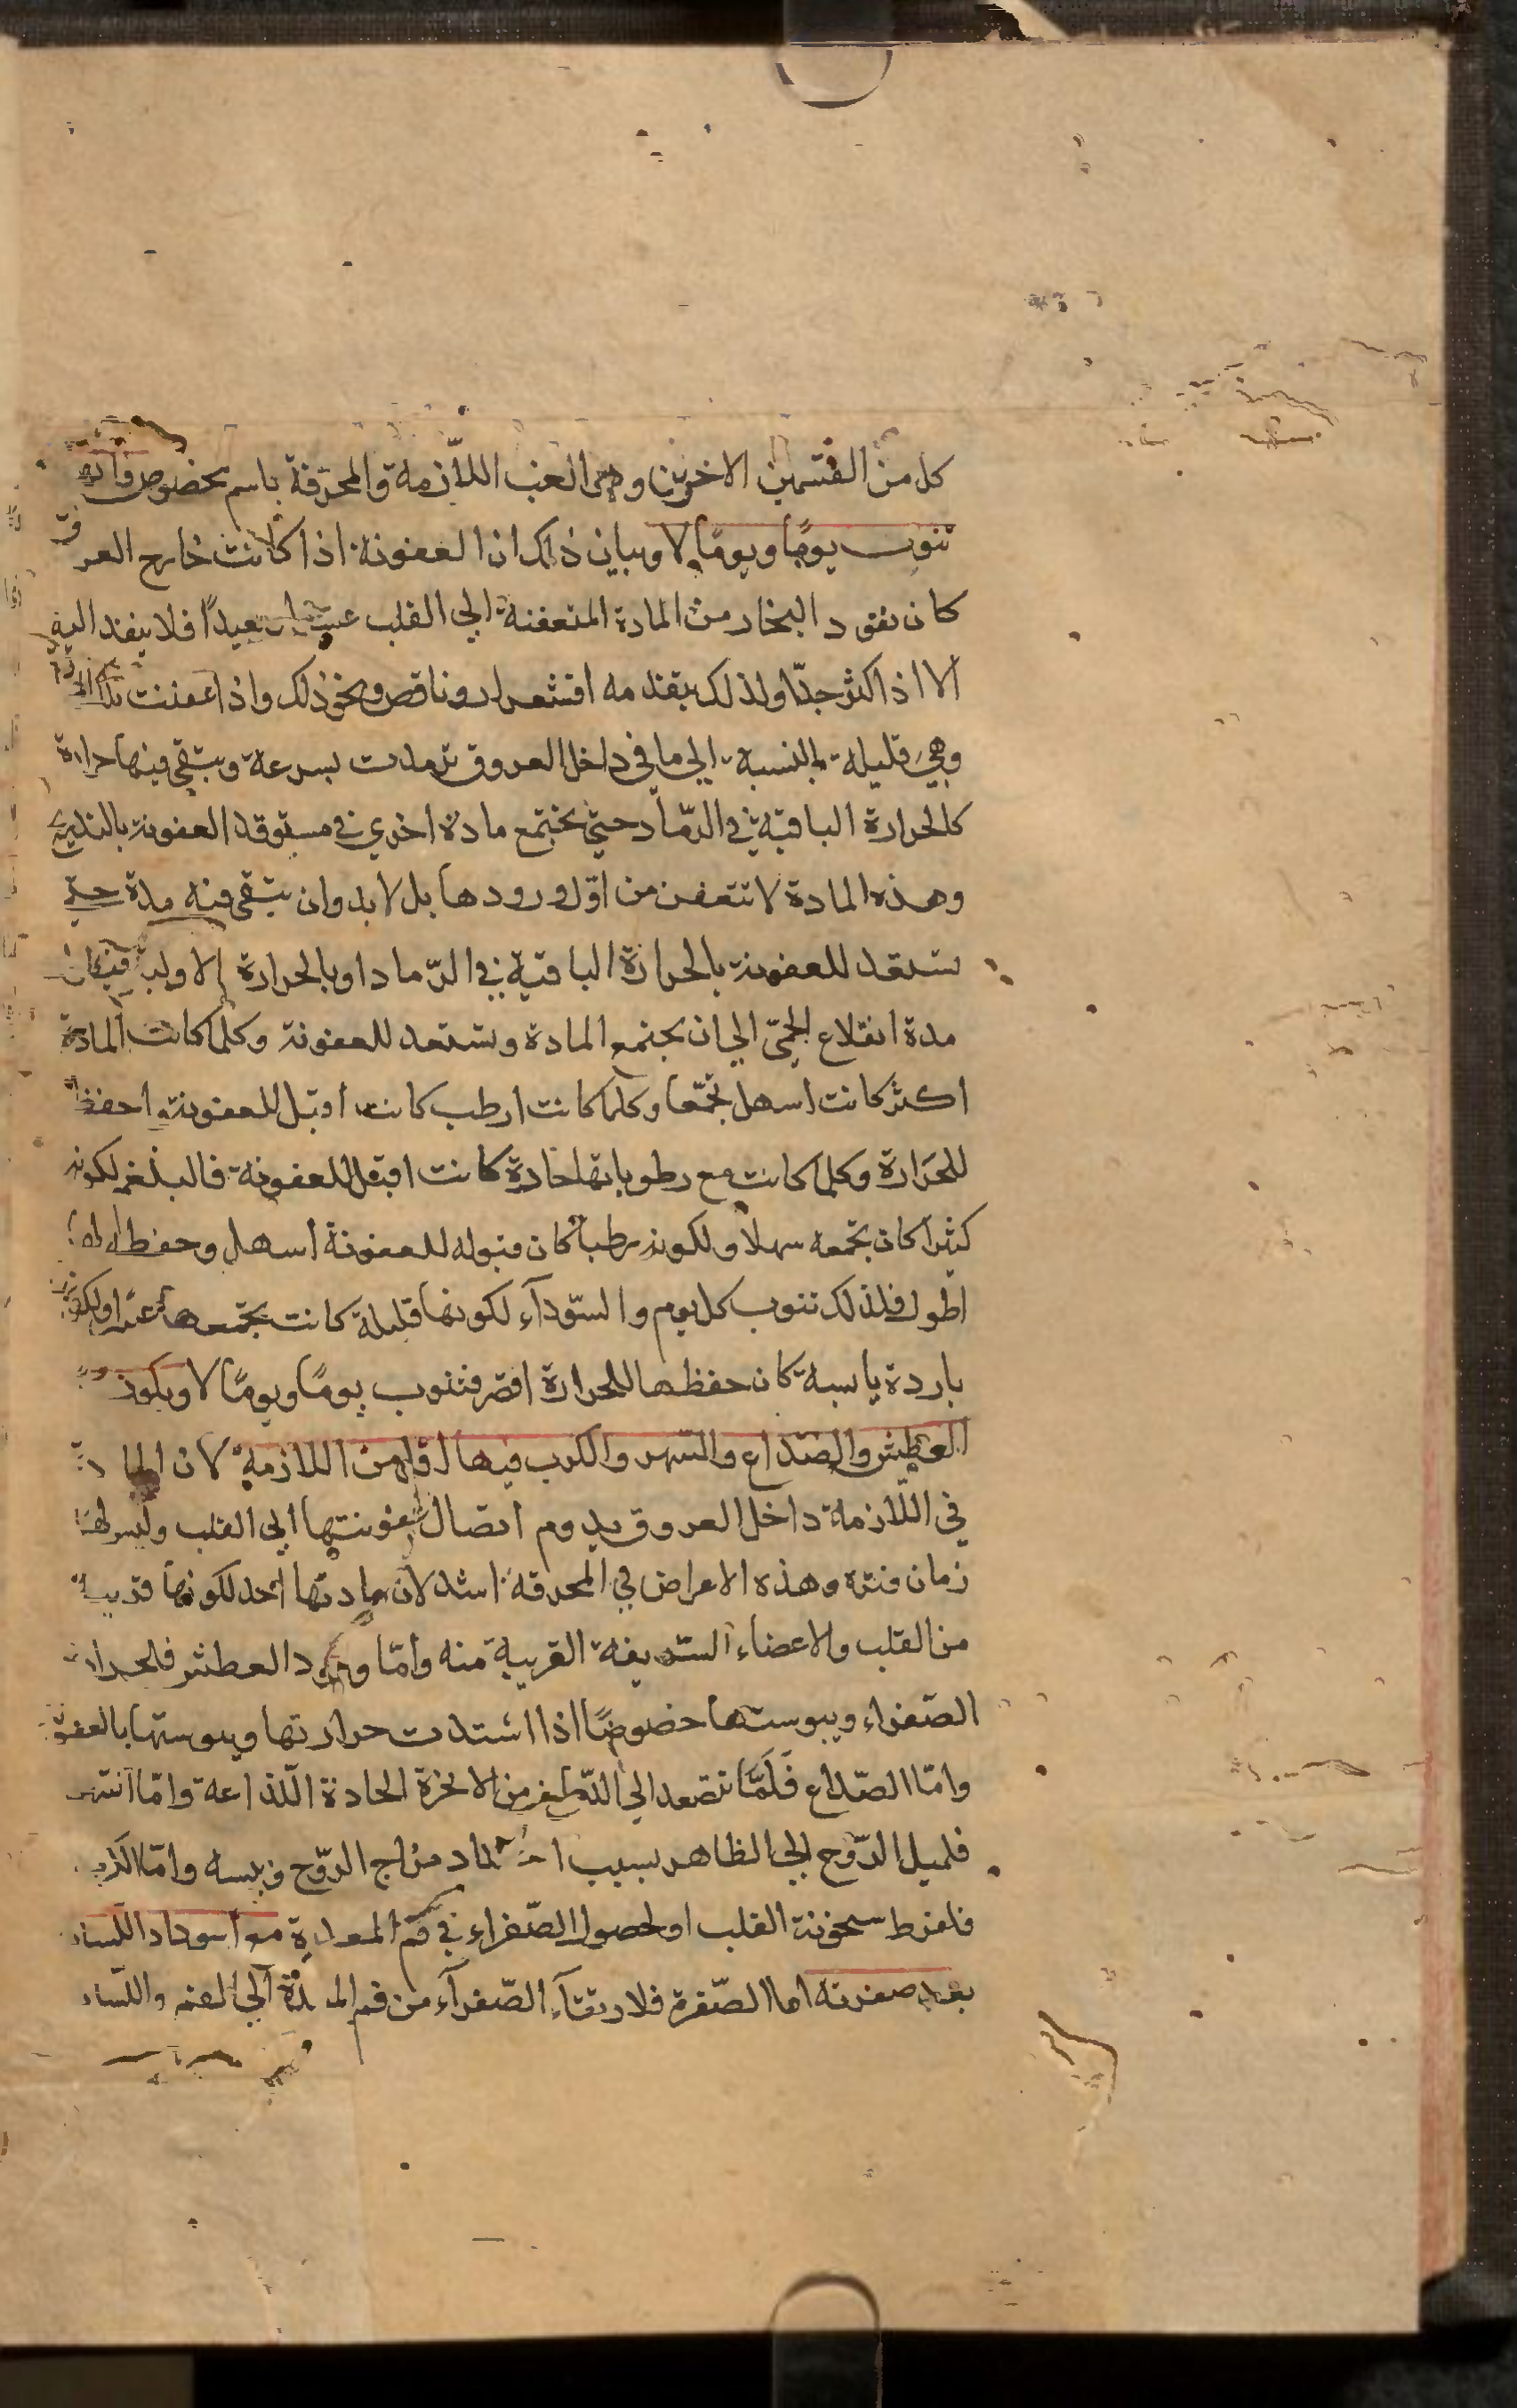 كل من القسمين الاخرين وهى الغب اللاّزمة والمحرقة باسم مخصوص فانها
تنوب يومًا ويومًا لا وبيان ذلك ان العفونة اذا كانت خارج العروق
كان نفود البخار من المادة المتعفنة الى القلب بعيدًا فلا ينفد اليه
الا اذا كثر جدّا ولذلك يتقدمه اقشعرار ونافض ونحو ذلك واذا عفنت تلك المادة
وهي قليلة بالنسبة الي ما في داخل العروق ترمدت بسرعة ويبقى فيها حرارة
كالحرارة الباقية في الرّماد حتي تجتمع مادة اخري في مستوقد العفونة بالتدريج
وهذه المادة لا تتعفن من اوّل ورودها بل لا بد وان يبقى فيه مدة حتي
تستعد للعفونة بالحرارة الباقية في الرّماد او بالحرارة الاولية فيكون
مدة انقلاع الحمّى الي ان يجتمع المادة وتستعد للعفونة وكلما كانت المادة
اكثر كانت اسهل تجمّعا وكلما كانت ارطب كانت اقبل للعفونة واحفظ
للحَرَارة وكلما كانت مع رطوباتها حارة كانت اقبل للعفونة فالبلغم لكونه
كثيرا كان تجمعه سهلا ولكونه رطبا كان قبوله للعفونة اسهل وحفظه لها
اطول فلذلك تنوب كل يوم والسّودآء لكونها قليلة كانت تجمعها عسرا ولكونها
باردة يابسة كان حفظها للحرارة اقصر فتنوب يومًا ويومًا لا ويكون
العطش والصداع والسّهر والكرب فيها اقل من اللازمة لان المادة
في اللّازمة داخل العروق يدوم اتصال عفونتها الى القلب وليس لها
زمان فترة وهذه الاعراض في المحرقة اشد لان مادتها احد لكونها قريبة
من القلب والاعضاء الشريفة القريبة منه وأمّا وجود العطش فلحرارة
الصّفراء ويبوستها خصوصًا اذا اشتدت حرارتها ويبوستها بالعفونة
وامّا الصّداع فَلَمَّا تتصعد الى الدّماغ من الابخرة الحادة اللّذاعة وامّا السّهر
فلميل الرّوح الى الظاهر بسبب احتداد مزاج الرّوح ويبسه وامّا الكرب
فلفرط سخونة القلب او لحصول الصّفراء في فم المعدة مع اسوداد اللّسان
بعد صفرته اما الصّفرة فلارتقآء الصّفرآء من فم المعدة الى الفم واللّسان